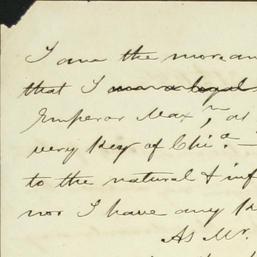 I am the more an
that I was a loyal
Emperor Max,n at
very Key of Chi.a —
to the natural & inf
nor I have any
As Mr.